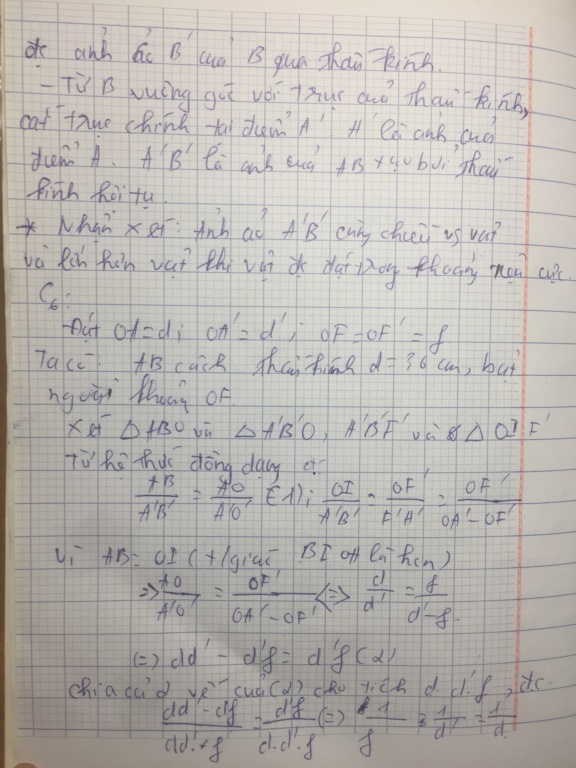 đc ảnh ảo B' của B qua thấu kính.
- Từ B' xuống góc với trục của thấu kính,
cắt trục chính tại điểm A'. A' là ảnh của
điểm A. A'B' là ảnh của AB tạo bởi thấu
kính hội tụ.
* Nhận xét: Ảnh ảo A'B' cùng chiều vs vật
và lớn hơn vật khi vật đc đặt trong khoảng tiêu cự.
C6:
Đặt OA = d; OA' = d'; OF = OF' = f
Ta có: AB cách thấu kính d = 36 cm, vật
ngoài khoảng OF.
Xét Δ ABO và Δ A'B'O, A'B'F' và Δ OIF'
Từ hệ thức đồng dạng có
AB/A'B' = AO/A'O (1); OI/A'B' = OF'/F'A' = OF'/OA'-OF'
Vì AB = OI (tứ giác BIOA là hcn)
=> AO/A'O = OF'/OA'-OF' <=> d/d' = f/d'-f.
(=) dd' - df = d'f (2)
chia cả 2 vế của (2) cho tích d.d'.f, đc